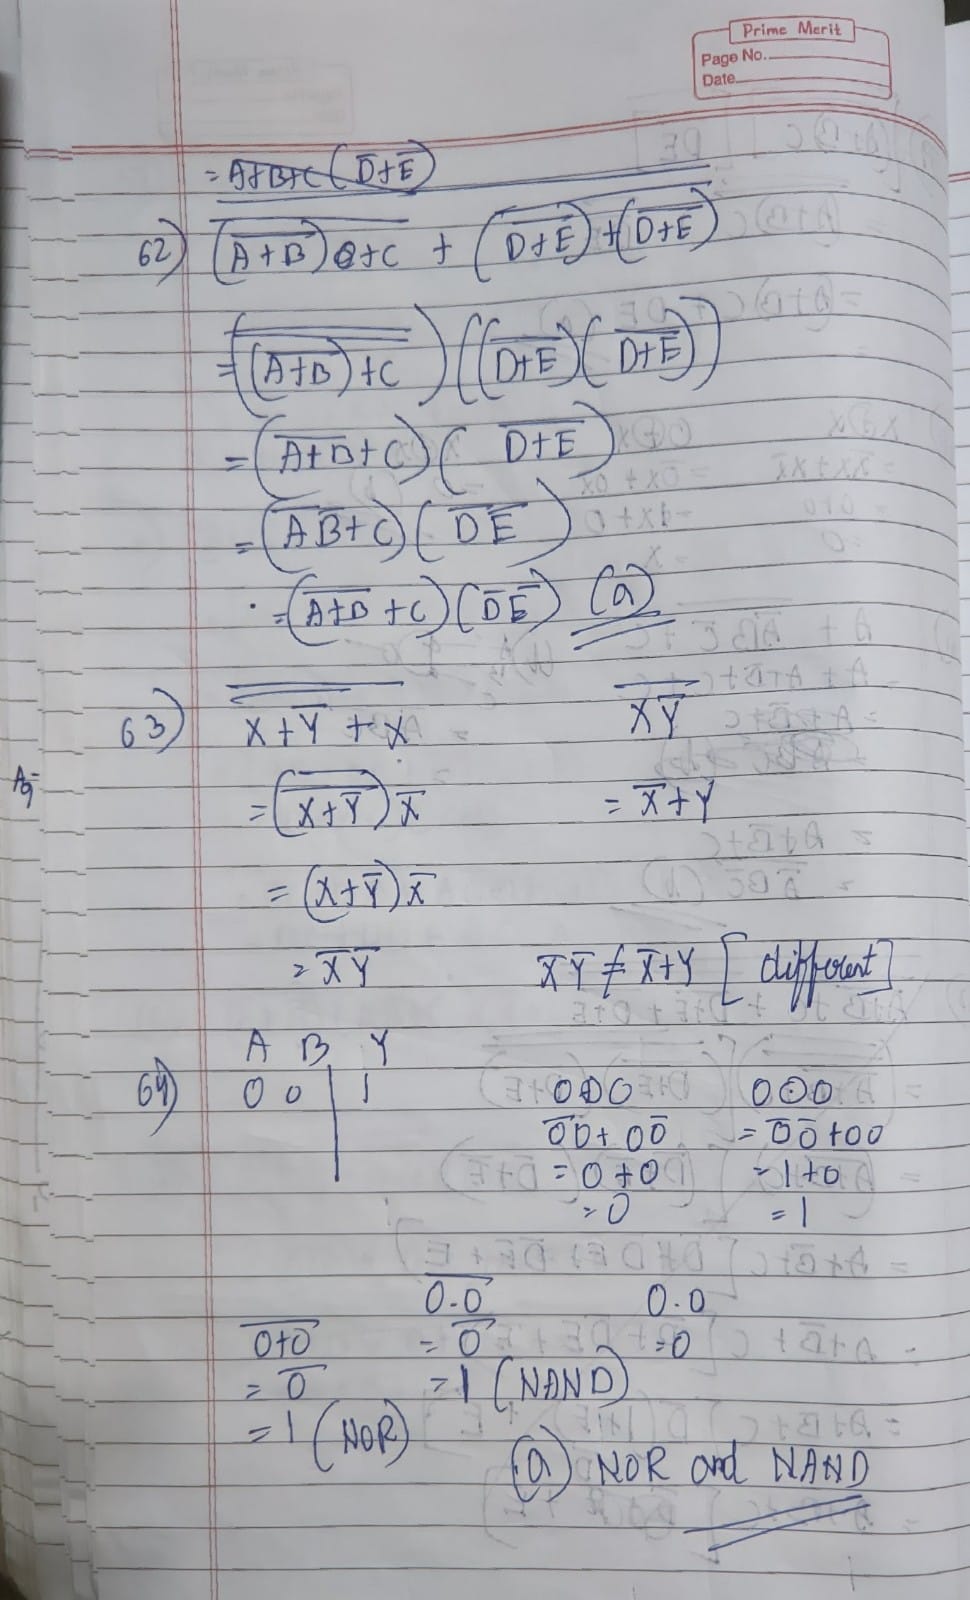 Prime Merit
Page No.
Date
= A+B+C (D̅+E̅)
62) (A+B)̅ + C + (D+E)̅ + (D+E)̅
= ((A+B)̅ + C) ((D+E)̅ (D+E)̅)
= (A+B̅ + C) (D+E)̅
= (A̅ B̅ + C) (D̅ E̅)
∴ = (A+B̅ + C) (D̅ E̅) (a)
63) X+Y̅ + X XY̅
= (X+Y̅) X̅ = X̅+Y
= (X+Y̅) X̅
= X̅ Y̅ X̅ Y̅ ≠ X̅+Y [different]
A B Y
64) 0 0 1 0⊕0 0⊙0
0̅0 + 00̅ = 0̅0̅ + 00
= 0+0 = 1+0
= 0 = 1
0.0̅ 0.0
0+0̅ = 0̅ = 0
= 0̅ = 1 (NAND)
= 1 (NOR)
(a) NOR and NAND